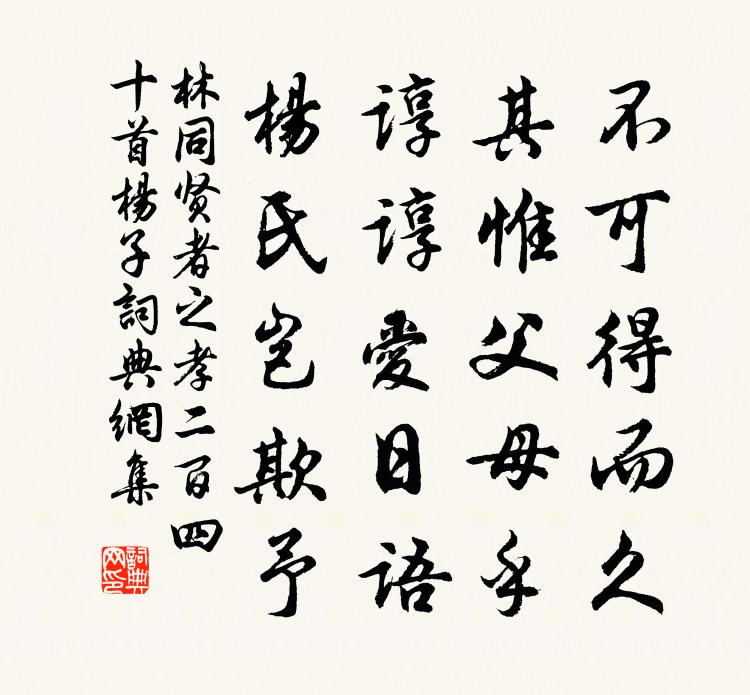 不可得而久
其惟父母乎
諄諄愛日語
楊氏豈欺予
林同賢者之孝二百四
十首楊子詞典網集
詞典网印